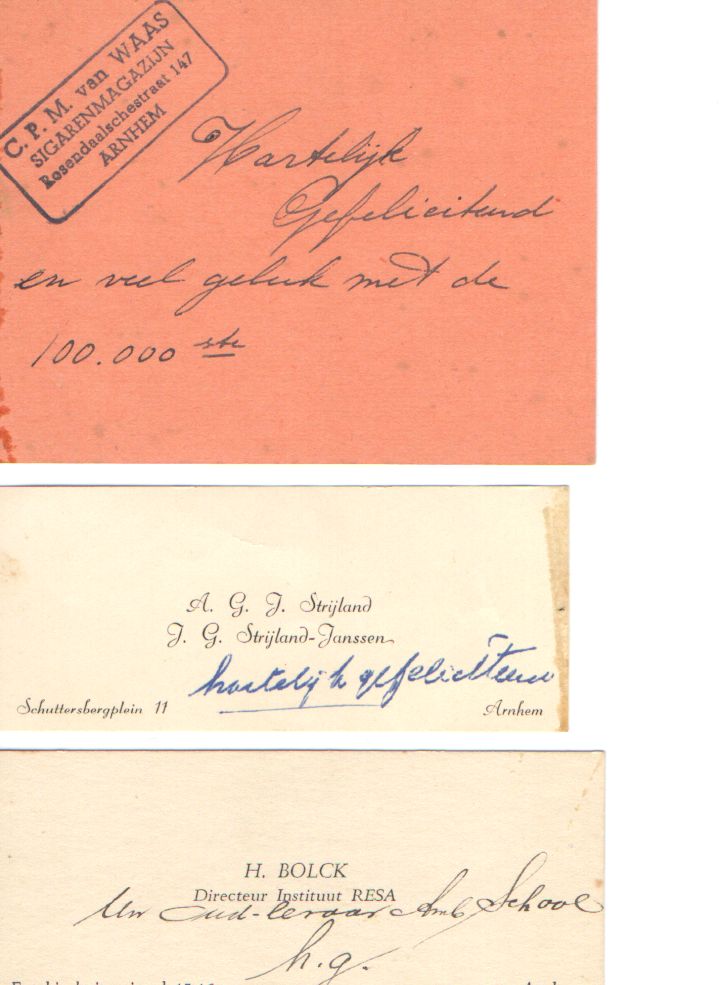 C. P. M. van WAAS
SIGARENMAGAZIJN
Rosendaalschestraat 147
ARNHEM
Hartelijk
Gefeliciteerd
en veel geluk met de
100.000 ste
A. G. J. Strijland
J. G. Strijland-Janssen
hartelijk gefeliciteerd
Schuttersbergplein 11 Arnhem
H. BOLCK
Directeur Instituut RESA
Uw Oud-leraar Amb. School
h.g.